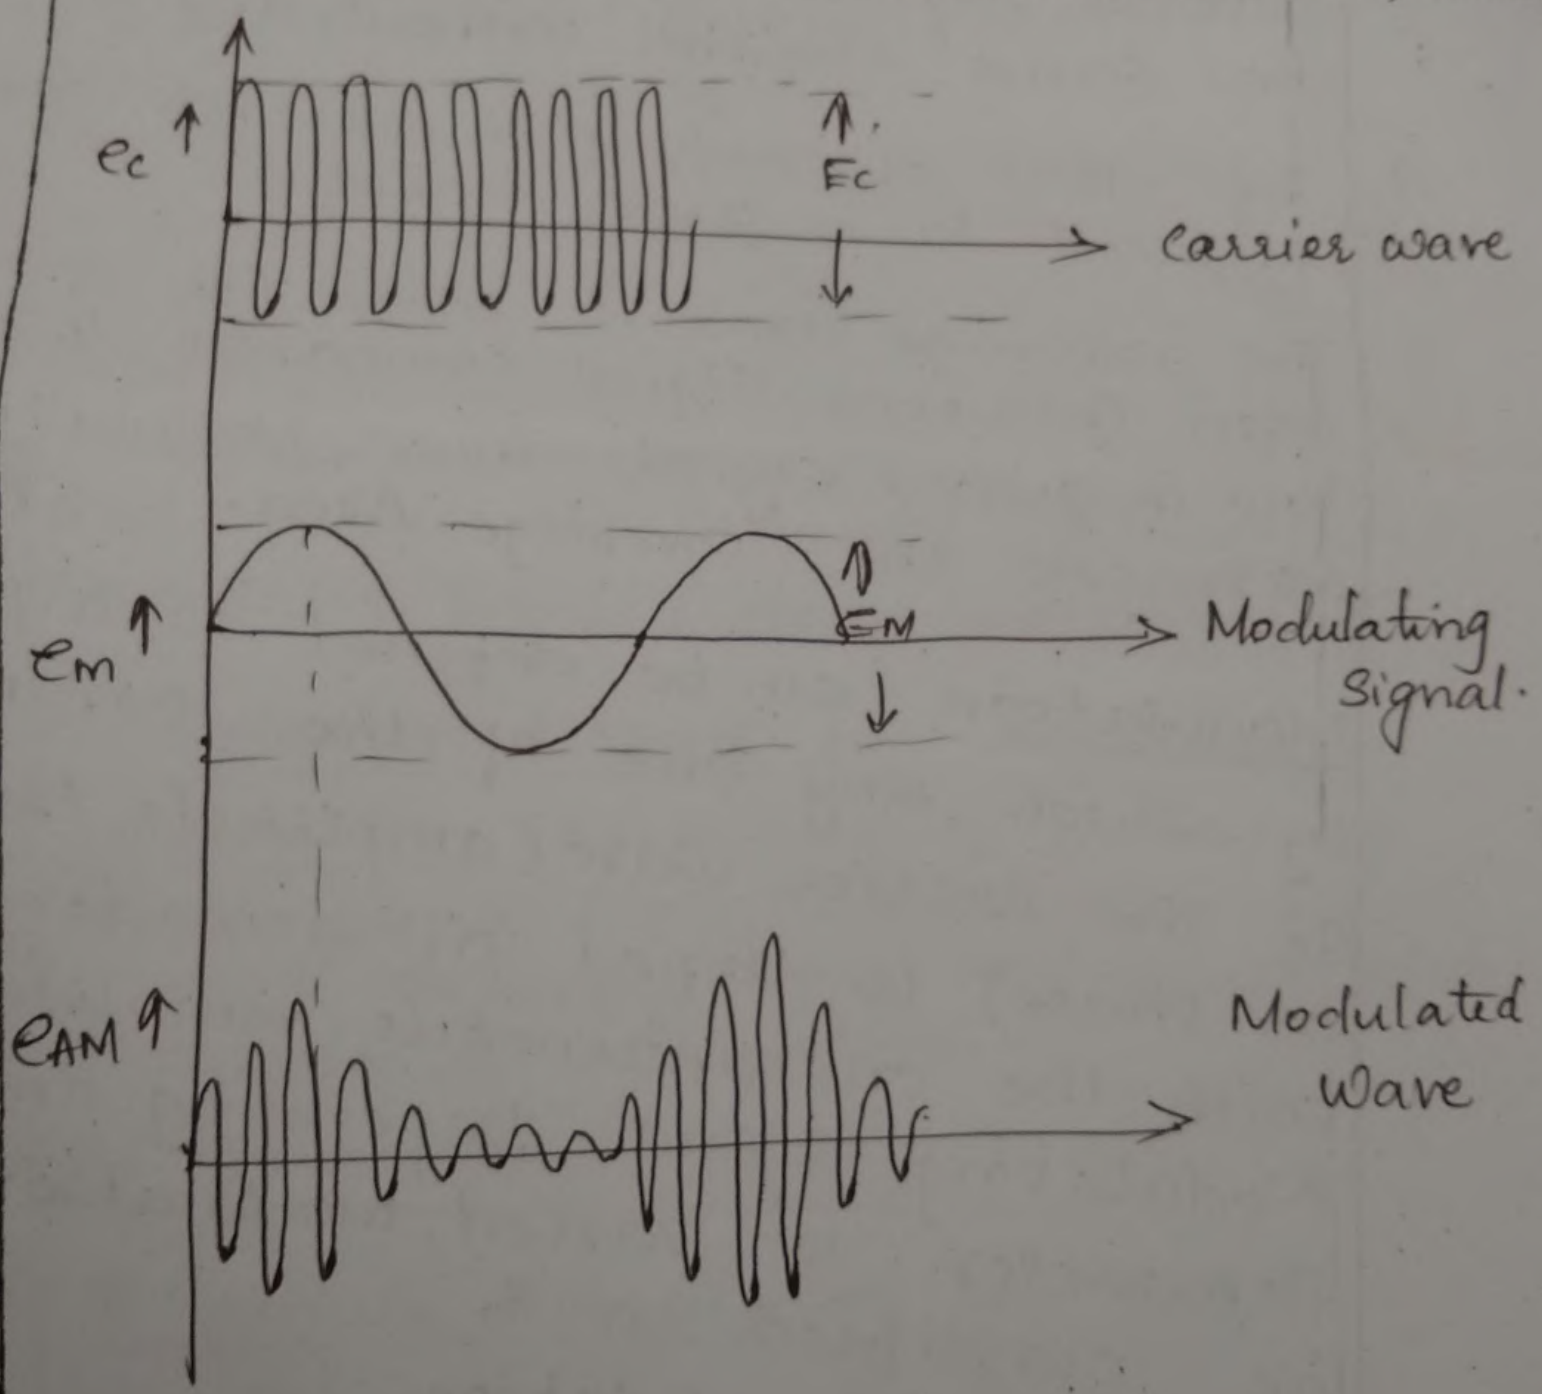 ec ↑
Ec
Carrier wave
em ↑
EM
Modulating
Signal.
eAM ↑
Modulated
Wave